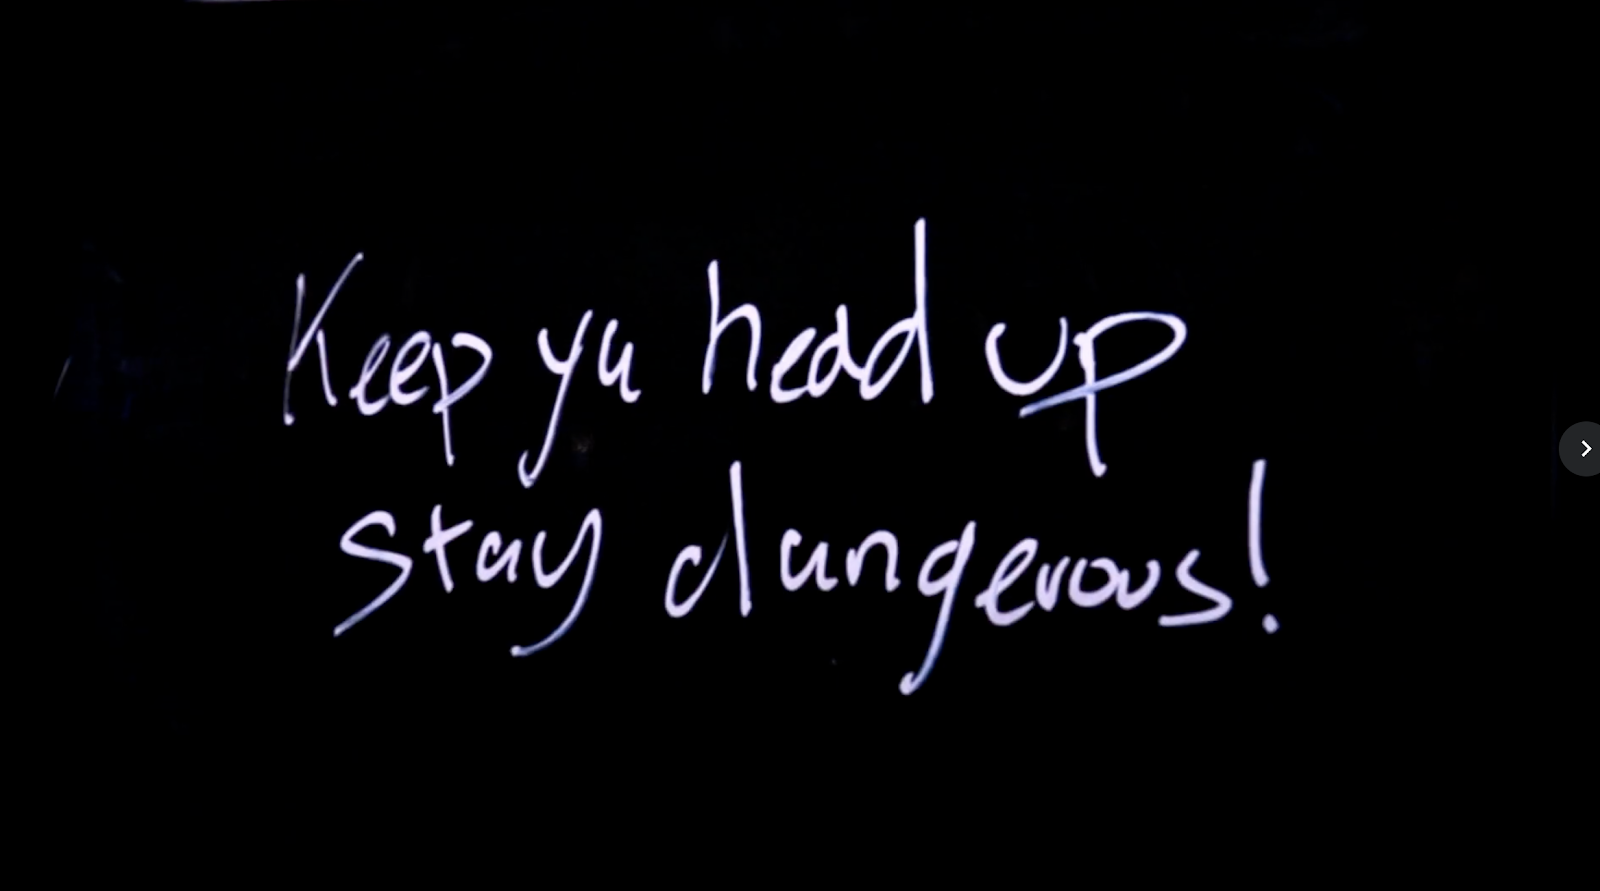 Keep ya head up
stay dangerous!